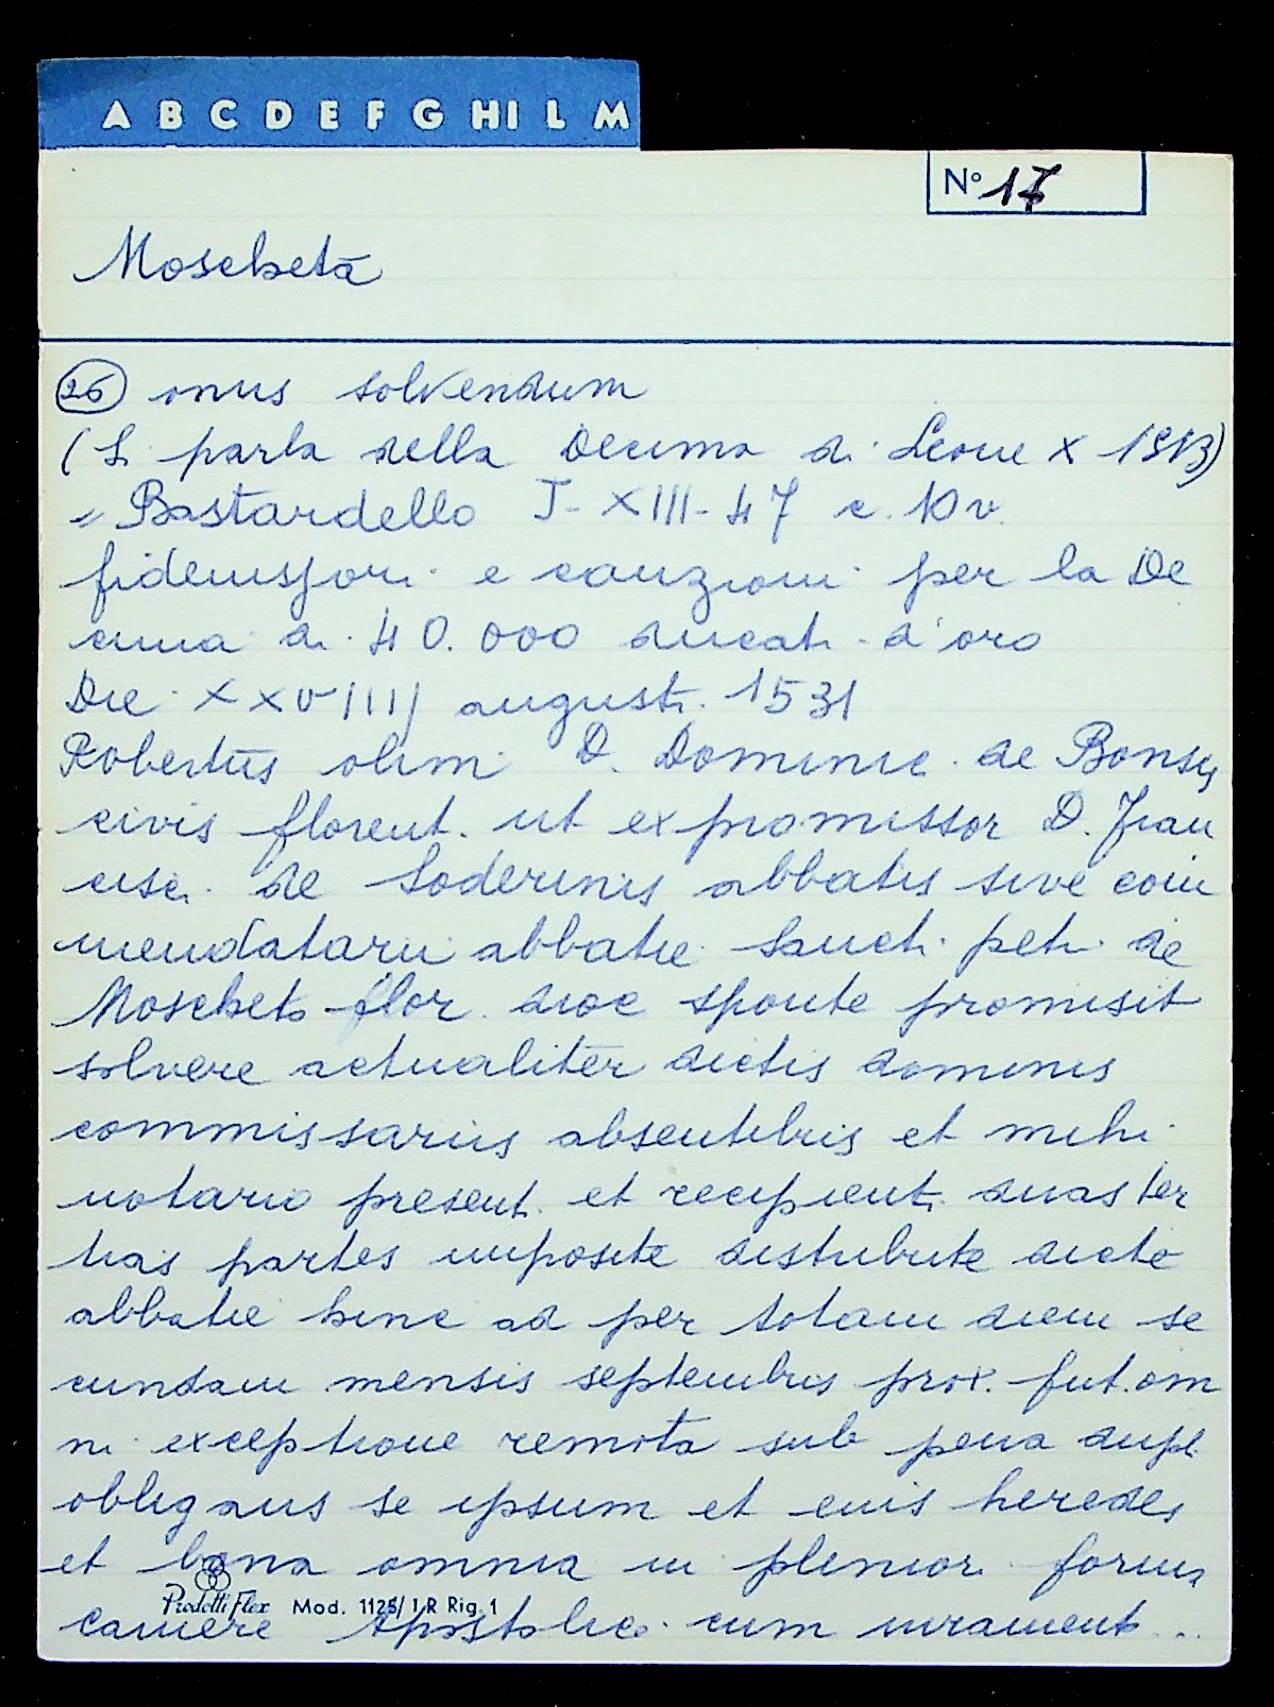 A B C D E F G HI L M
N° 17
Moscheta
26 onus solvendum
(Si parla della Decima di Leone X 1513)
" Bastardello J- XIII- 47 c. 10 v.
fideiussori e cauzioni per la De
cima di 40.000 ducati d'oro
Die XXVIIII augusti 1531
Robertus olim D. Dominic. de Bonsy
civis florent. ut expromissor D. Fran
cisci de Soderinis abbatis sive com
mendatarii abbatie Sancti petri de
Moscheto flor. dioc sponte promisit
solvere actualiter dictis dominis
commissariis absentibus et mihi
notario presenti et recipienti duas ter
tias partes imposite distribute dicte
abbatie hinc ad per totam diem se
cundam mensis septembris prox. fut. om
ni exceptione remota sub pena dupl.
obligans se ipsum et euis heredes
et bona omnia in plenior. forma
camere Apostolice cum iurament...
Prodotti Flex Mod. 1125/1 R Rig. 1